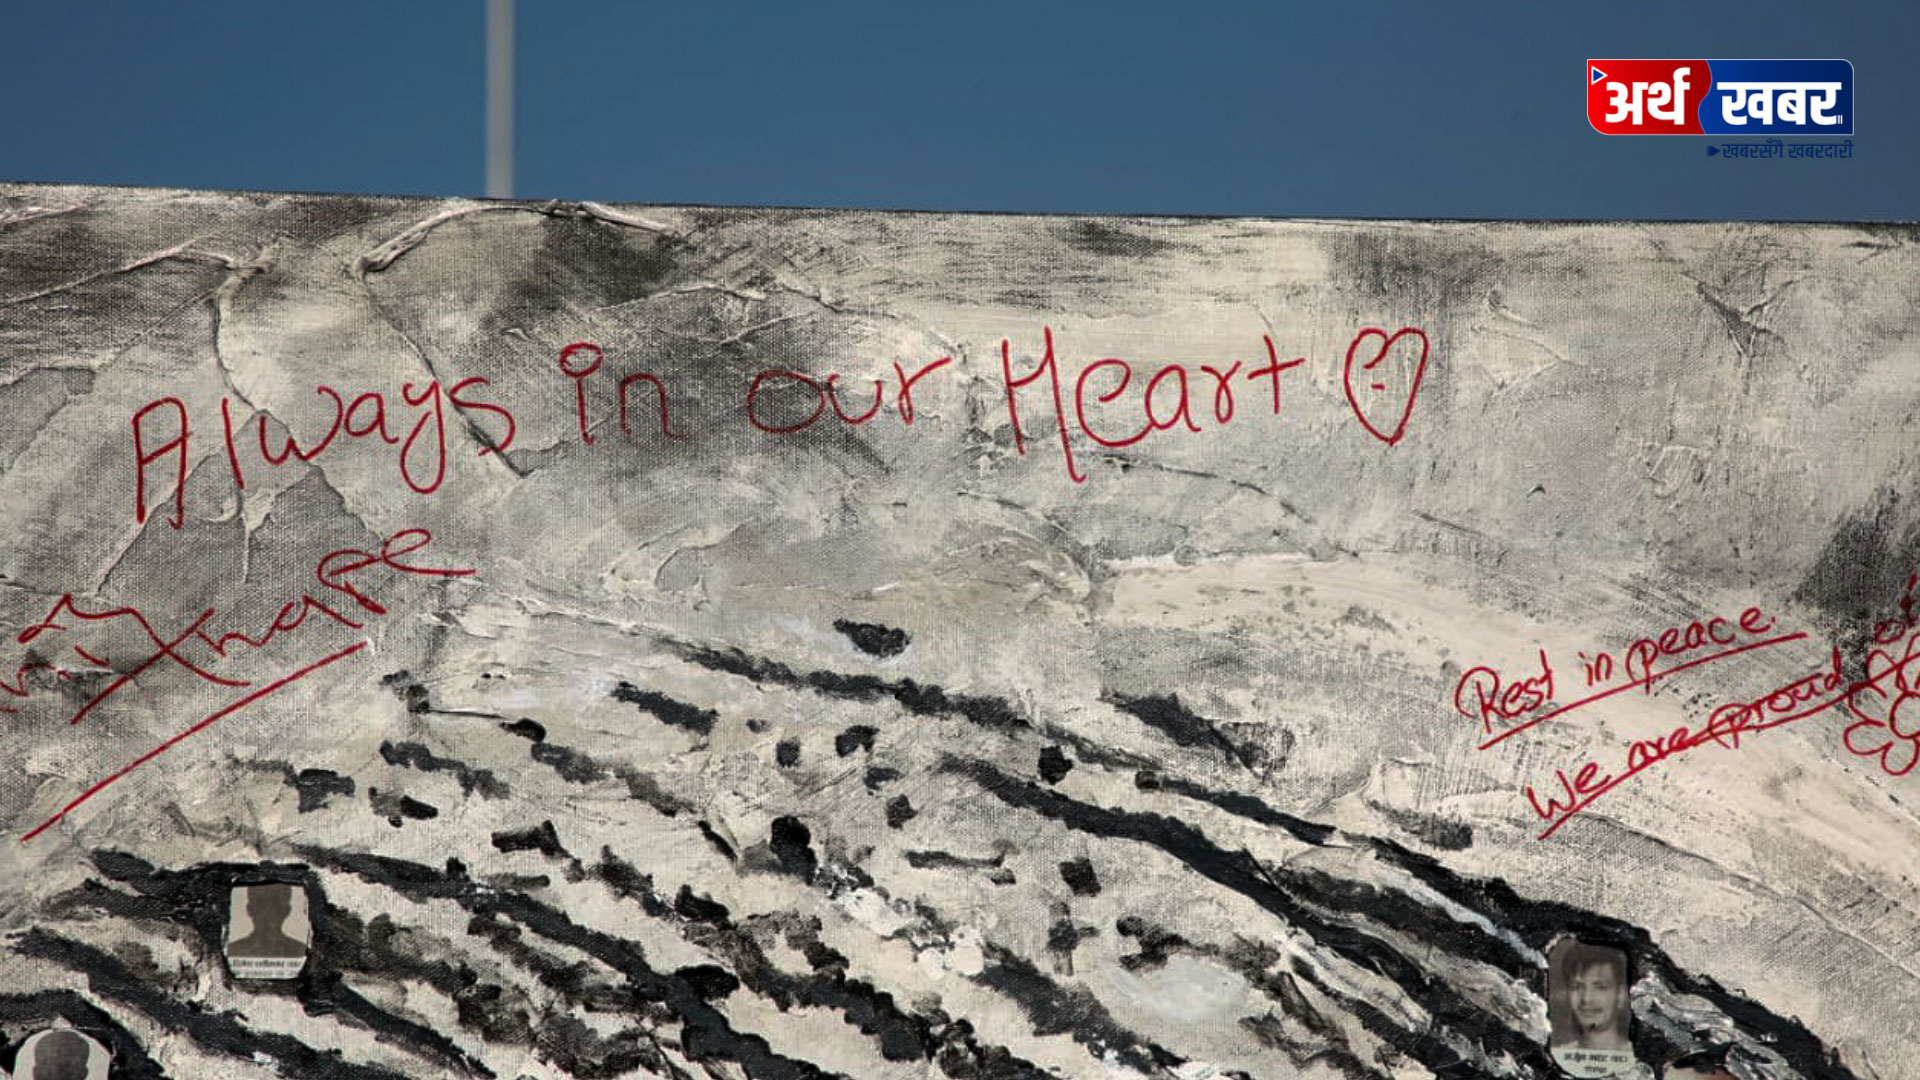 अर्थ खबर
खबरसँगै खबरदारी
Always in our Heart
Rest in peace.
We are proud of